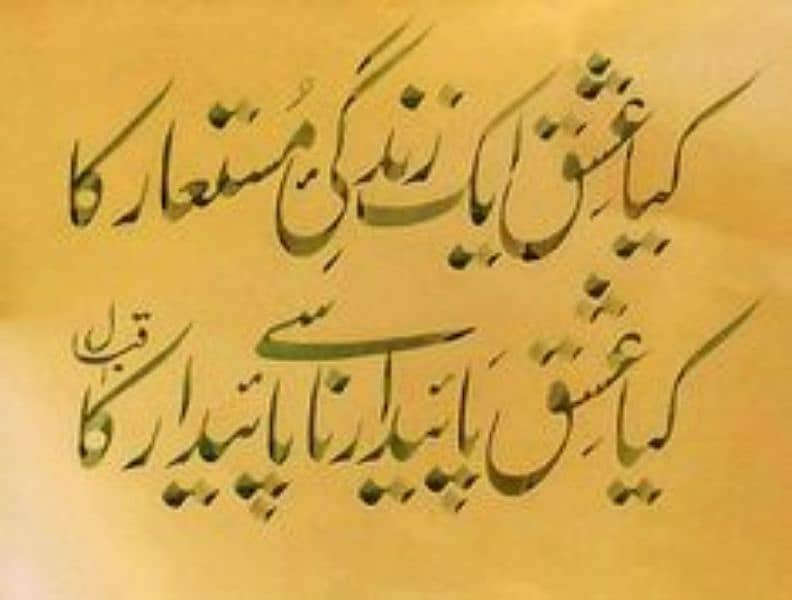 کیا عشق ایک زندگیٔ مُستعار کا
کیا عشق پَائیدار سے ناپائیدار کا
اقبال